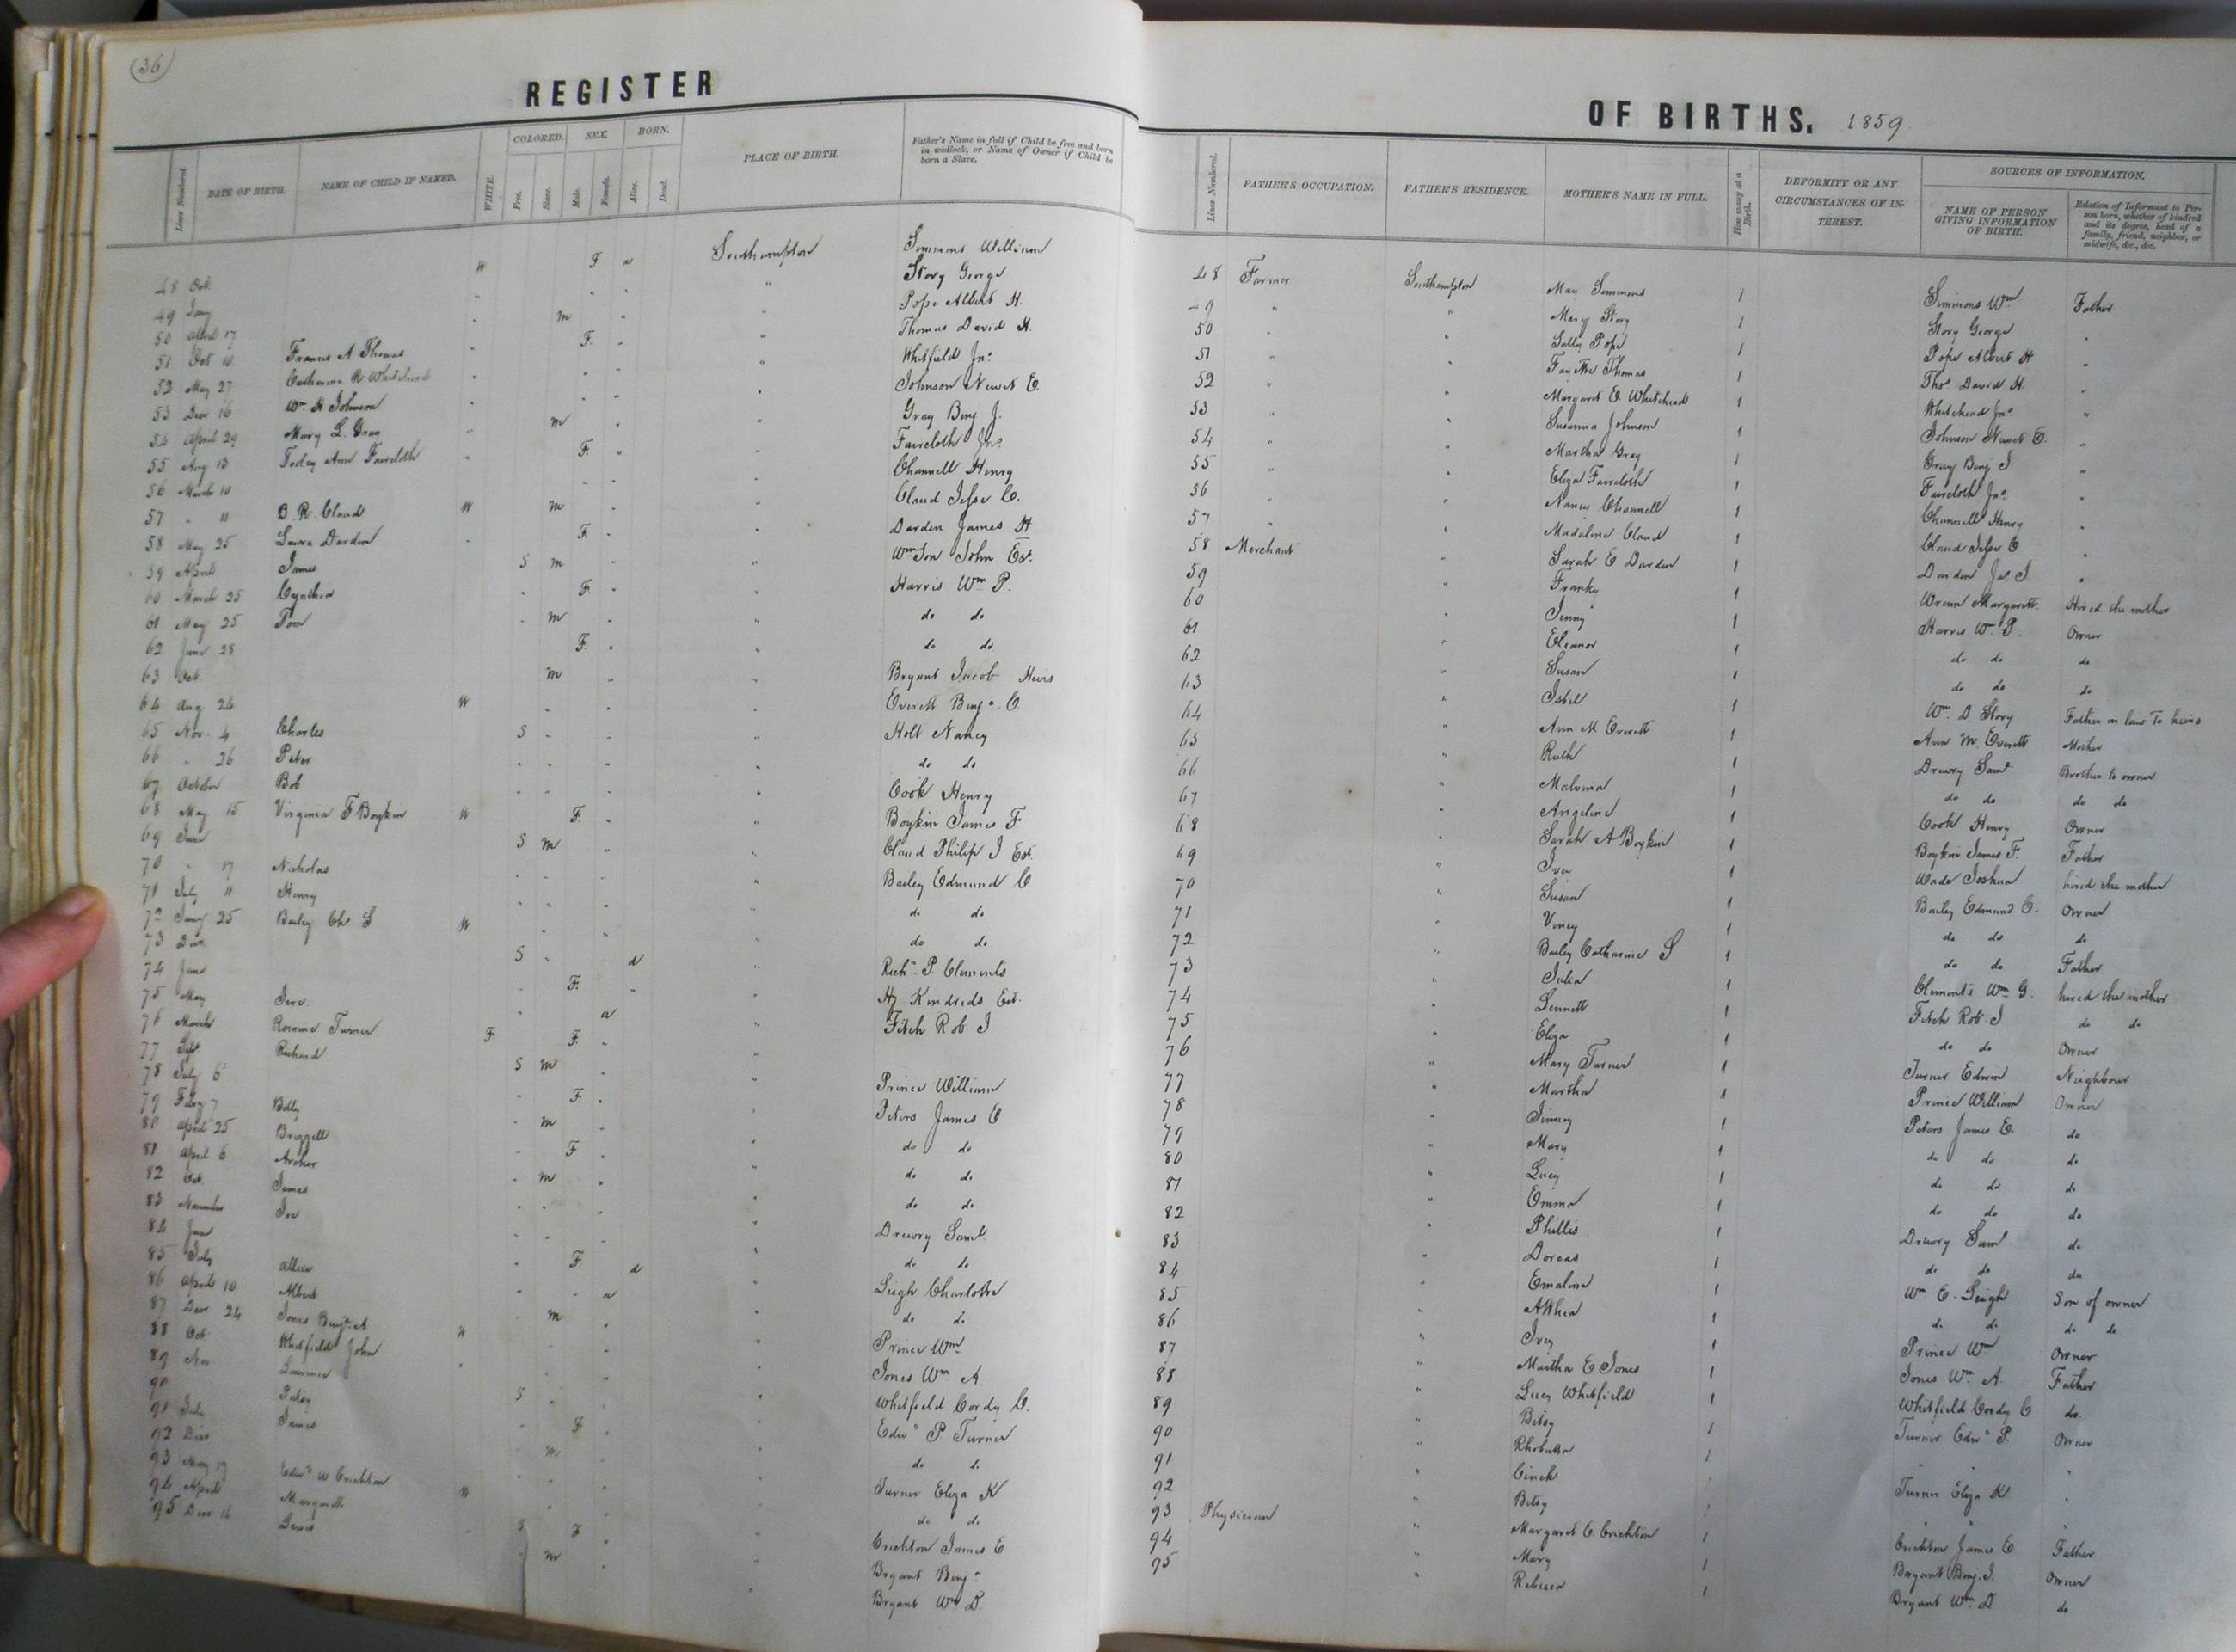 36
REGISTER
Lines Numbered. DATE OF BIRTH. NAME OF CHILD IF NAMED. WHITE. COLORED. Free. Slave. SEX. Male. Female. BORN. Alive. Dead. PLACE OF BIRTH. Father's Name in full if Child be free and born in wedlock, or Name of Owner if Child be born a Slave.
48 Oct. W F a Southampton Simmons William
49 Jany " " " " Story George
50 April 17 " m " " Pope Albert H.
51 Oct 10 Frances A Thomas " F. " " Thomas David H.
52 May 27 Catharine R Whitehead " " " " Whitfield Jno.
53 Decr 16 Wm H Johnson " " " Johnson Newit E.
54 April 29 Mary L. Gray " m " " Gray Benj J.
55 Aug 13 Ann Faircloth " F. " " Faircloth Jno.
56 March 10 " " " Channell Henry
57 " 11 B. R. Claud W m " " Claud Jesse C.
58 May 25 Laura Darden " F. " " Darden James H
59 April James S m " " John Est.
60 March 25 Cynthia " F. " " Harris Wm P.
61 May 25 Tom " m " " do do
62 June 28 " F. " " do do
63 Oct. " m " " Bryant Jacob Heirs
64 Aug 24 W " " " Everett Benj. C.
65 Nov. 4 Charles S " " " Holt Nancy
66 " 26 Peter " " " " do do
67 October Bob " " " " Cook Henry
68 May 15 Virginia F Boykin W F. " " Boykin James F
69 June S m " " Claud Philip J Est.
70 " 17 Nicholas " " " " Bailey Edmund C
71 July " Henry " " " " do do
72 Jany 25 Bailey Ch. S W " " " do do
73 Decr S " d " Richd. P. Clements
74 June " F. " " Hy Kindreds Est.
75 May " a " Fitch Rob J
76 March Turner F F. "
77 Sept. Richard S m " " Prince William
78 July 6 " F. " " Peters James E
79 Feby 7 Billy " m " " do do
80 April 25 " F. " " do do
81 April 6 Archer " m " " do do
82 Oct. James " " " " Drewry Saml.
83 November " " " " do do
84 June " F d " Leigh Charlotte
85 July " " a " do do
86 April 10 Albert " m " " Prince Wm
87 Decr 24 Jones W " " " Jones Wm A.
88 Oct. Whitfield John " " " " Whitfield Cordy C.
89 Nov. S " " " Edwd P. Turner
90 Patsy " F " " do do
91 July James " m " " Turner Eliza K
92 Decr " " " do do
93 May 19 Edwd W Crichton W " " " Crichton James E
94 April Margarett S F " " Bryant Benj.
95 Decr 16 Lewis " m " " Bryant Wm D.
OF BIRTHS. 1859.
Lines Numbered. FATHER'S OCCUPATION. FATHER'S RESIDENCE. MOTHER'S NAME IN FULL. How many at a Birth. DEFORMITY OR ANY CIRCUMSTANCES OF INTEREST. SOURCES OF INFORMATION. NAME OF PERSON GIVING INFORMATION OF BIRTH. Relation of Informant to Person born, whether of kindred and its degree, head of a family, friend, neighbor, or midwife, &c., &c.
48 Farmer Southampton Mary Simmons 1 Simmons Wm Father
49 " " Mary Story 1 Story George "
50 " " Sally Pope 1 Pope Albert H "
51 " " Thomas 1 Thos David H. "
52 " " Margaret E. Whitehead 1 Whitehead Jno. "
53 " " Susanna Johnson 1 Johnson Newit E. "
54 " " Martha Gray 1 Gray Benj J "
55 " " Eliza Faircloth 1 Faircloth Jno. "
56 " " Nancy Channell 1 Channell Henry "
57 " " Madaline Claud 1 Claud Jesse C "
58 Merchant " Sarah E Darden 1 Darden Jas. J. "
59 " Franky 1 Margarett Hired the mother
60 " Jinny 1 Harris Wm. P. Owner
61 " Eleanor 1 do do do
62 " Susan 1 do do do
63 " Isbel 1 Wm. D Story Father in law To heirs
64 " Ann M Everett 1 Ann M. Everett Mother
65 " Ruth 1 Drewry Saml Brother to owner
66 " Malvina 1 do do do do
67 " Angeline 1 Cook Henry Owner
68 " Sarah A Boykin 1 Boykin James F. Father
69 " Ivey 1 Wade Joshua hired the mother
70 " Susan 1 Bailey Edmund C. Owner
71 " Viney 1 do do do
72 " Bailey Catharine S 1 do do Father
73 " Julia 1 Clements Wm G. hired the mother
74 " 1 Fitch Rob. J do do
75 " Eliza 1 do do Owner
76 " Mary Turner 1 Turner Edwin Neighbour
77 " Martha 1 Prince William Owner
78 " Jinney 1 Peters James E. do
79 " Mary 1 do do do
80 " Lucy 1 do do do
81 " Emma 1 do do do
82 " Phillis 1 Drewry Saml do
83 " Dorcas 1 do do do
84 " Emaline 1 Wm E. Leigh Son of owner
85 " Althea 1 do do do do
86 " Ivey 1 Prince Wm Owner
87 " Martha E Jones 1 Jones Wm. A. Father
88 " Lucy Whitfield 1 Whitfield Cordy C do.
89 " Betsy 1 Turner Edwd P. Owner
90 " 1 " "
91 " 1 Turner Eliza K "
92 " Betsy 1 " " "
93 Physician " Margaret E. Crichton 1 Crichton James E Father
94 " Mary 1 Bryant Benj. J. Owner
95 " Rebecca 1 Bryant Wm. D do